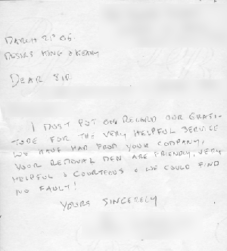 MARCH
DEAR SIR
I MUST PUT ON RECORD OUR GRATI-
TUDE FOR THE VERY HELPFUL SERVICE
WE HAVE HAD FROM YOUR COMPANY,
YOUR REMOVAL MEN ARE FRIENDLY, VERY
HELPFUL & COURTEOUS & WE COULD FIND
NO FAULT!
YOURS SINCERELY